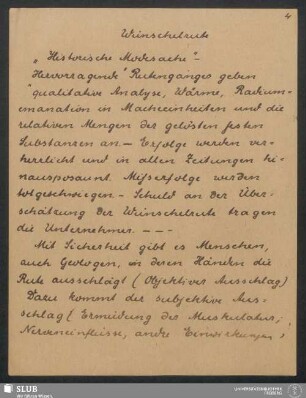 4
Wünschelrute
„Historische Modesache“-
Hervorragende Rutengänger geben
qualitative Analyse, Wärme, Radium-
emanation in Macheeinheiten und die
relativen Mengen der gelösten festen
Substanzen an. – Erfolge werden ver-
herrlicht und in allen Zeitungen hi-
nausposaunt. Mißerfolge werden
totgeschwiegen. – Schuld an der Über-
schätzung der Wünschelrute tragen
die Unternehmer. – – –
Mit Sicherheit gibt es Menschen,
auch Geologen, in deren Händen die
Rute ausschlägt (Objektiver Ausschlag)
Dazu kommt der subjektive Aus-
schlag (Ermüdung der Muskulatur,
Nerveneinflüsse, andre Einwirkungen,
SLUB
Wir führen Wissen.
UNIVERSITÄTSBIBLIOTHEK
FREIBERG